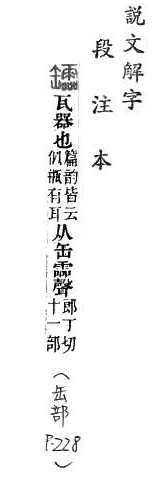 説文解字
段注本
䍅 瓦器也篇韵皆云似瓶有耳从缶霝聲郎丁切十一部(缶部 P.228)